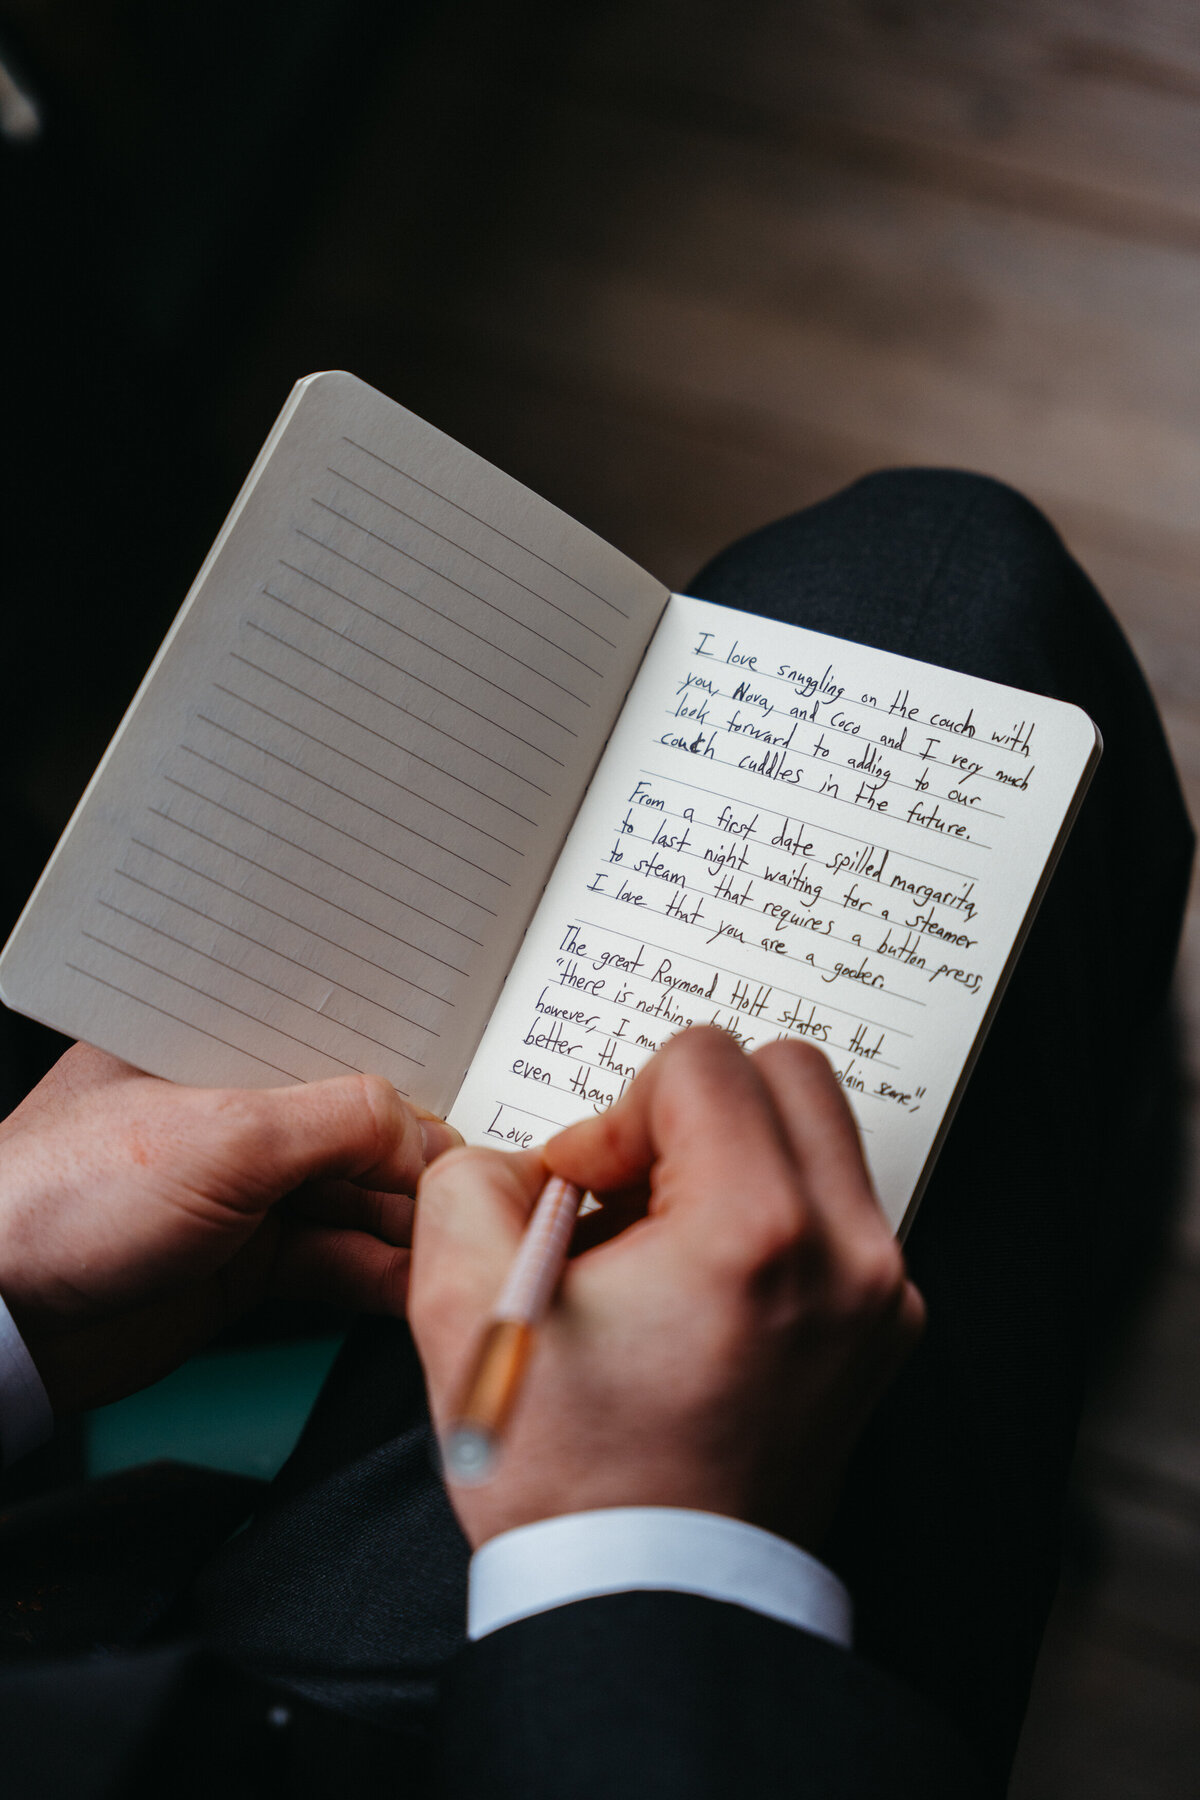 I love snuggling on the couch with
you, Nova, and Coco and I very much
look forward to adding to our
couch cuddles in the future.
From a first date spilled margarita,
to last night waiting for a steamer
to steam that requires a button press,
I love that you are a goober.
The great Raymond Holt states that
"there is nothing better plain scone",
however, I
better than
even
Love